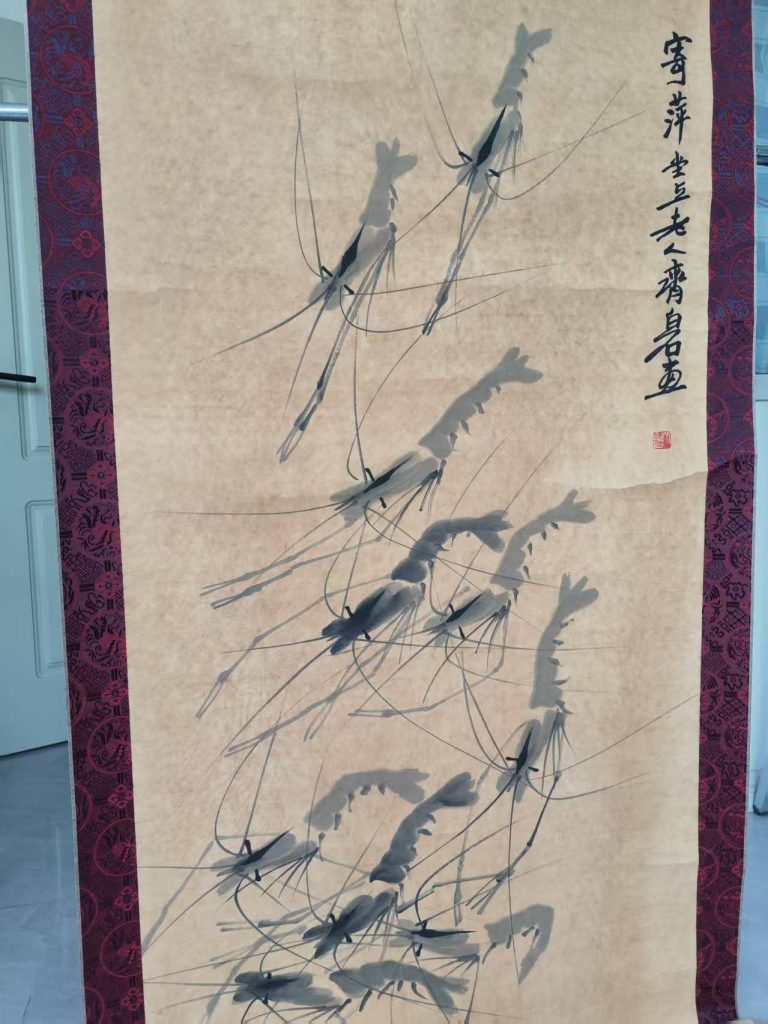 寄萍堂上老人齊白石畫